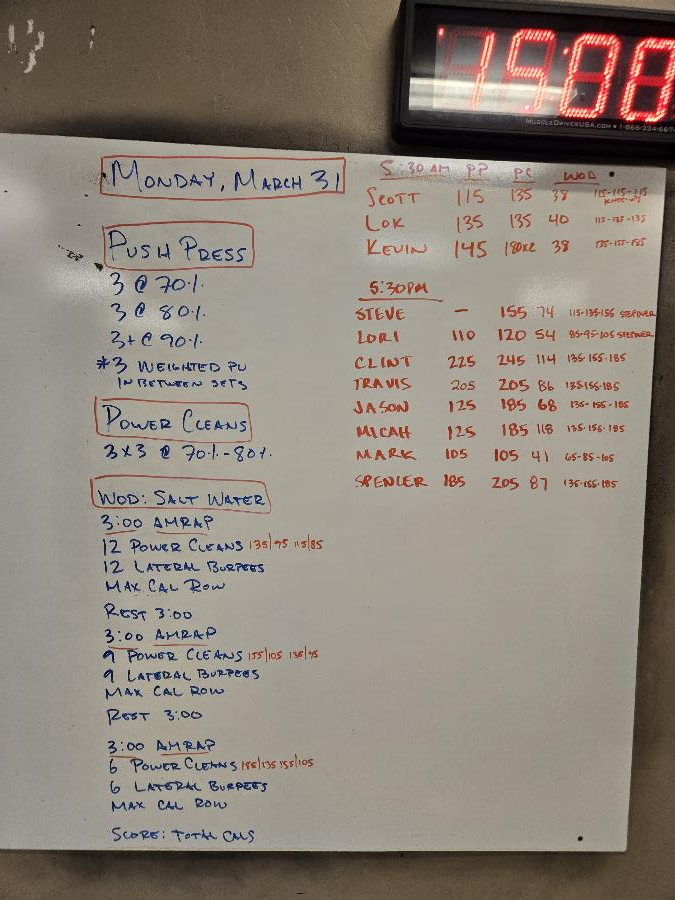 19:00
MuscleDriverUSA.com • 1-866-234-667
Monday, March 31
Push Press
3 @ 70%
3 @ 80%
3+ @ 90%
*3 Weighted PU
in between sets
Power Cleans
3x3 @ 70%-80%
WOD: Salt Water
3:00 AMRAP
12 Power Cleans 135/95 115/85
12 Lateral Burpees
Max Cal Row
Rest 3:00
3:00 AMRAP
9 Power Cleans 155/105 135/95
9 Lateral Burpees
Max Cal Row
Rest 3:00
3:00 AMRAP
6 Power Cleans 185/135 155/105
6 Lateral Burpees
Max Cal Row
Score: Total Cals
5:30 AM PP PC WOD
Scott 115 135 38 115-115-115
Lok 135 135 40 115-135-135
Kevin 145 180x2 38 135-155-185
5:30PM
Steve — 155 74 115-135-155 Stepover
Lori 110 120 54 85-95-105 Stepover
Clint 225 245 114 135-155-185
Travis 205 205 86 135-155-185
Jason 125 185 68 135-155-185
Micah 125 185 118 135-155-185
Mark 105 105 41 65-85-105
Spencer 185 205 87 135-155-185